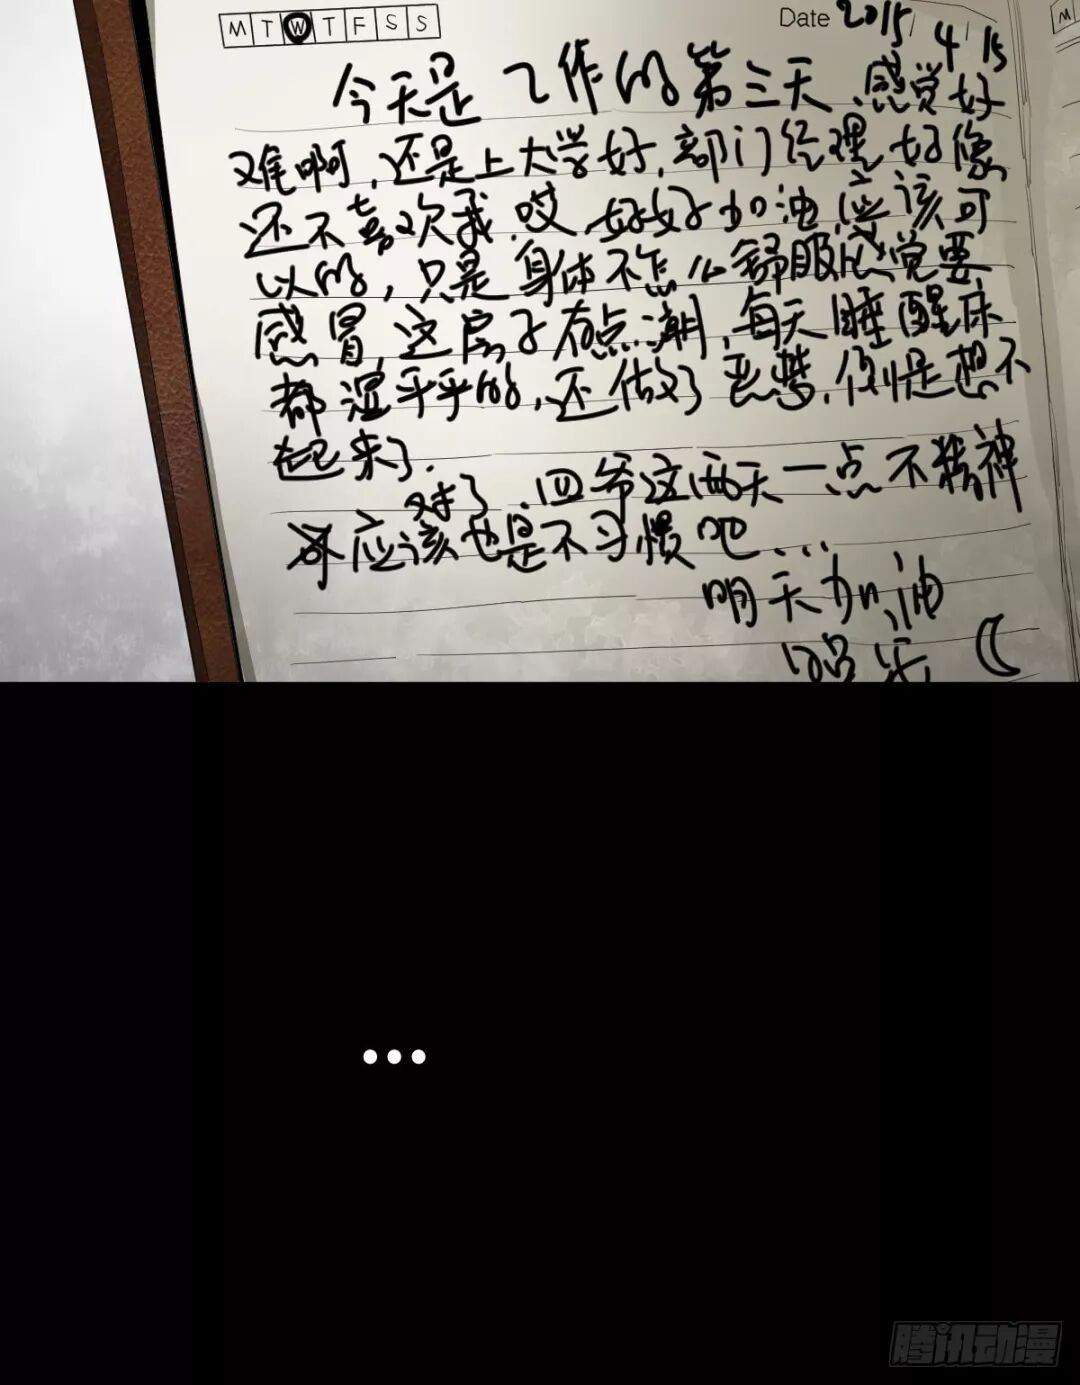 M T W T F S S
Date 2015/4/15
今天是工作的第三天,感觉好
难啊,还是上大学好,部门经理好像
还不喜欢我,哎,好好加油,应该可
以的,只是身体不怎么舒服感觉要
感冒,这房子有点潮,每天睡醒床
都湿乎乎的,还做了恶梦,倒是想不
起来了.
对了,四爷这两天一点不精神
应该也是不习惯吧...
明天加油
M
...
腾讯动漫